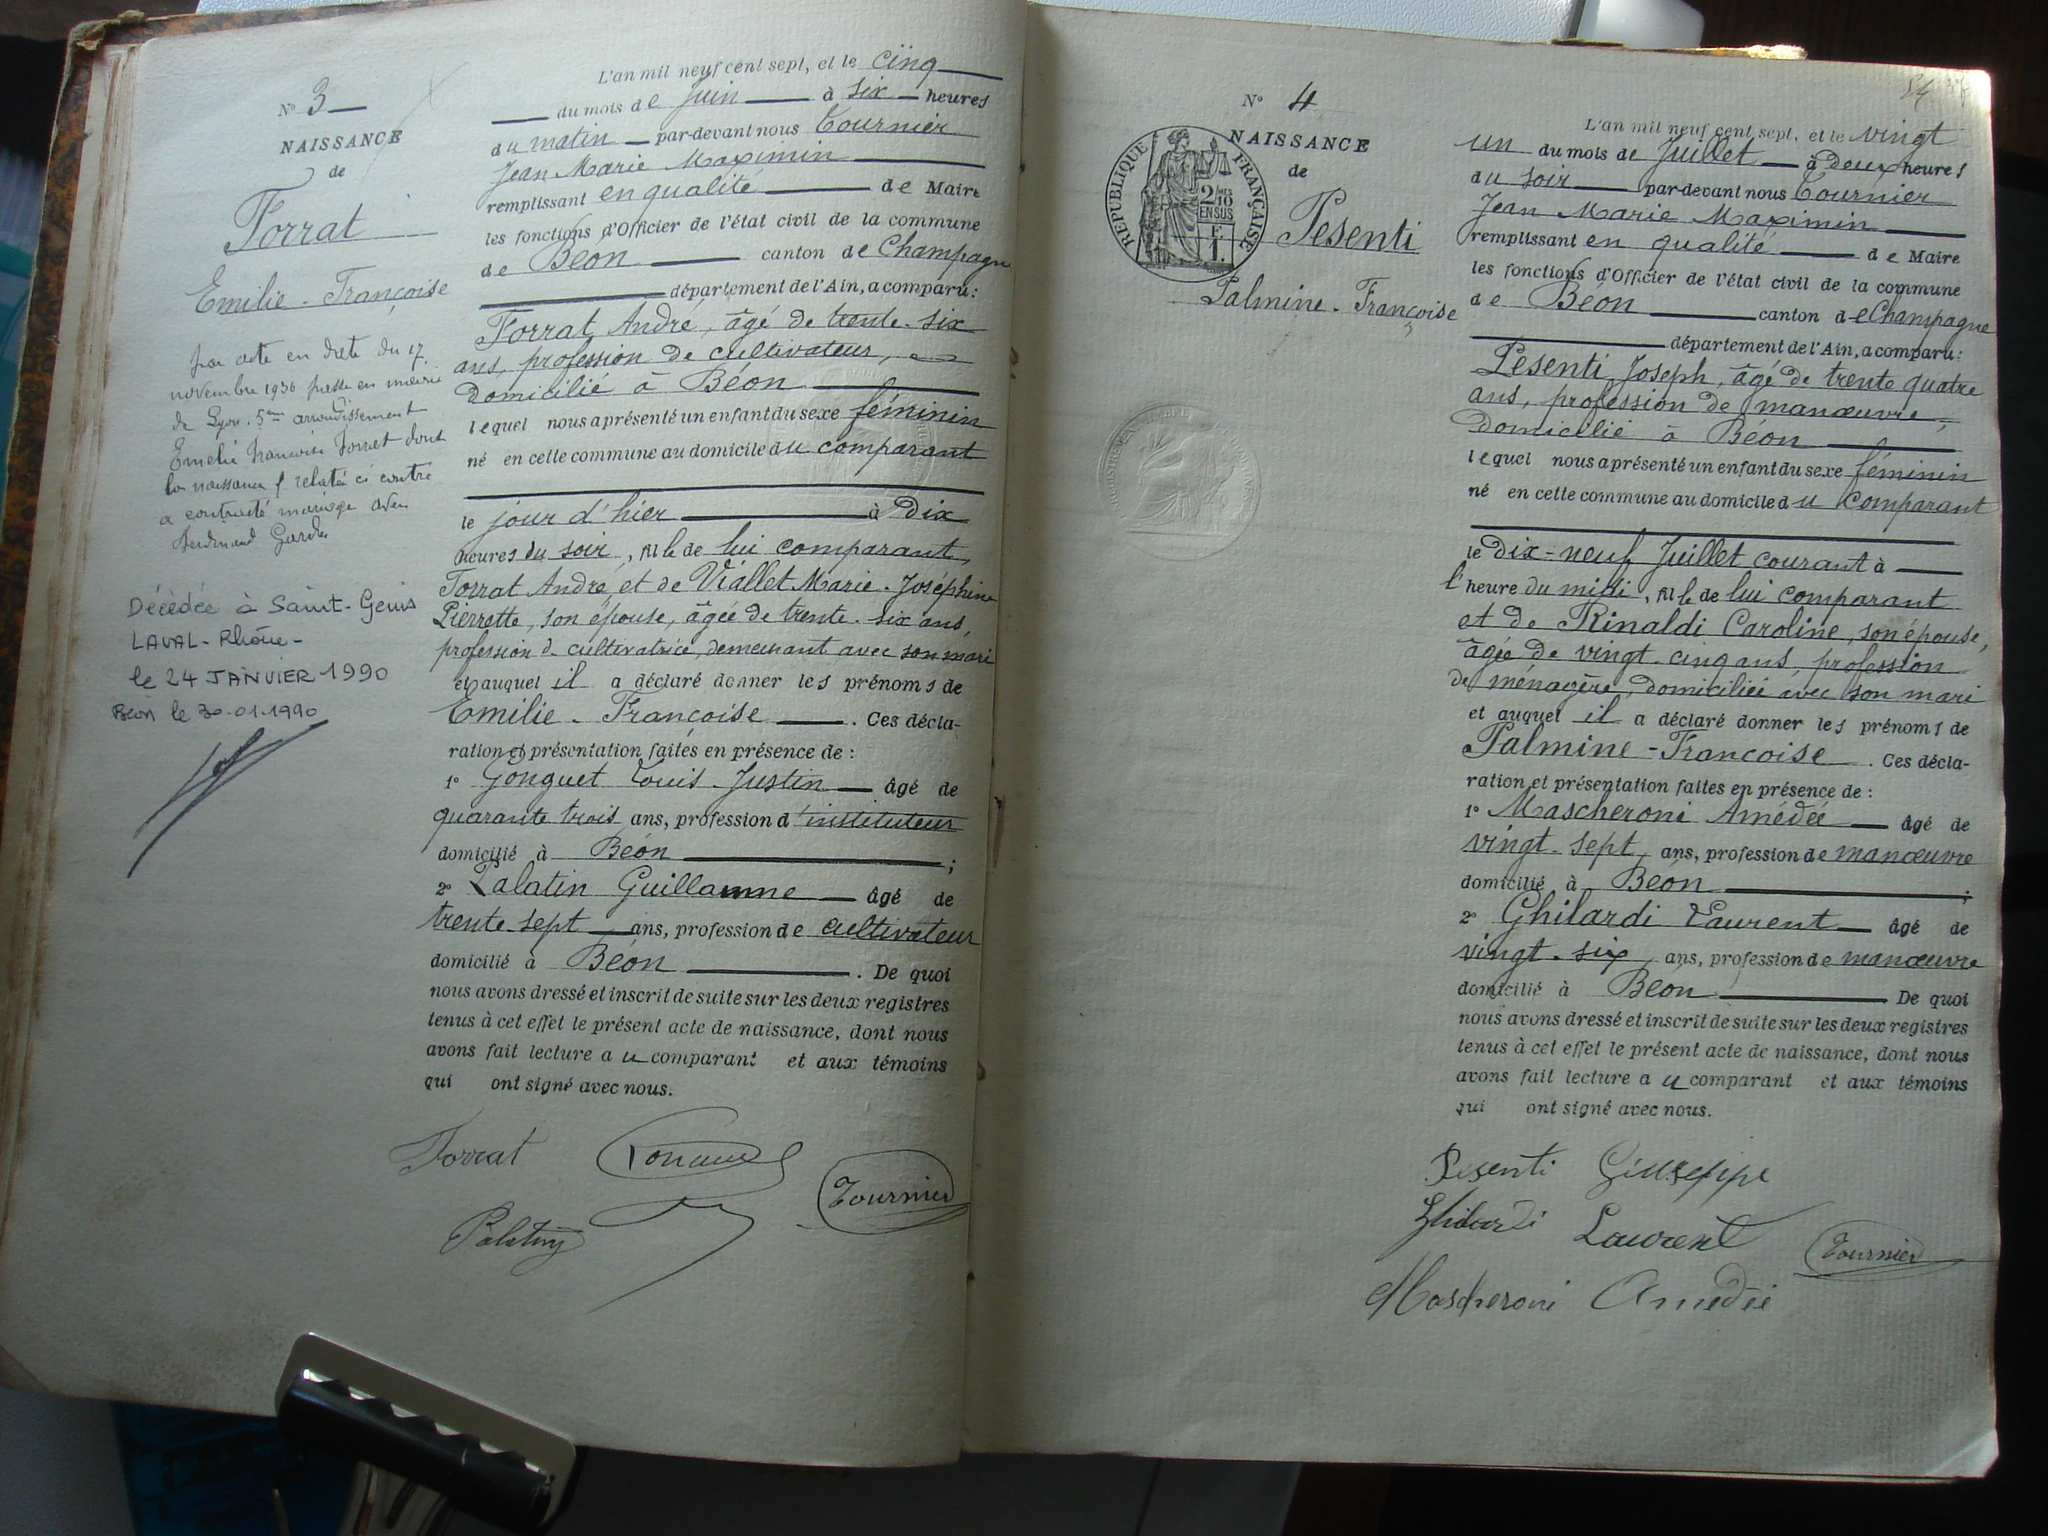 N° 3
NAISSANCE
de
Forrat
Emilie-Françoise
par acte en date du 17
novembre 1936 passé en mairie
de Lyon. 5ème arrondissement
Emélie Françoise Forrat dont
la naissance relatée ci contre
a contracté mariage avec
Ferdinand
Décédée à Saint-Genis
LAVAL-Rhône-
le 24 JANVIER 1990
Béon le 30-01-1990
L'an mil neuf cent sept, et le cinq
du mois de Juin à six heures
du matin par-devant nous Tournier
Jean Marie Maximin
remplissant en qualité de Maire
les fonctions d'Officier de l'état civil de la commune
de Béon canton de Champagne
département de l'Ain, a comparu:
Forrat André, âgé de trente-six
ans, profession de cultivateur,
domicilié à Béon
lequel nous a présenté un enfant du sexe féminin
né en cette commune au domicile du comparant
le jour d'hier à dix
heures du soir, fille de lui comparant,
Forrat André, et de Viallet Marie-Joséphine
Pierrette, son épouse, âgée de trente-six ans,
profession de cultivatrice, demeurant avec son mari
et auquel il a déclaré donner les prénoms de
Emilie-Françoise. Ces décla-
ration et présentation faites en présence de:
1° Gonguet Louis-Justin âgé de
quarante trois ans, profession d'instituteur
domicilié à Béon;
2° Palatin Guillaume âgé de
trente-sept ans, profession de cultivateur
domicilié à Béon. De quoi
nous avons dressé et inscrit de suite sur les deux registres
tenus à cet effet le présent acte de naissance, dont nous
avons fait lecture au comparant et aux témoins
qui ont signé avec nous.
Forrat
Tournier
Palatin
N° 4
NAISSANCE
de
RÉPUBLIQUE FRANÇAISE
2/10 EN SUS
F. 1.
Pesenti
Palmine-Françoise
L'an mil neuf cent sept, et le vingt
un du mois de Juillet à deux heures
du soir par-devant nous Tournier
Jean Marie Maximin
remplissant en qualité de Maire
les fonctions d'Officier de l'état civil de la commune
de Béon canton de Champagne
département de l'Ain, a comparu:
Pesenti Joseph, âgé de trente quatre
ans, profession de manœuvre,
domicilié à Béon
lequel nous a présenté un enfant du sexe féminin
né en cette commune au domicile du comparant
le dix-neuf Juillet courant à
l'heure du midi, fille de lui comparant
et de Rinaldi Caroline, son épouse,
âgée de vingt-cinq ans, profession
de ménagère, domiciliée avec son mari
et auquel il a déclaré donner les prénoms de
Palmine-Françoise. Ces décla-
ration et présentation faites en présence de:
1° Mascheroni Amédée âgé de
vingt-sept ans, profession de manœuvre
domicilié à Béon;
2° Ghilardi Laurent âgé de
vingt-six ans, profession de manœuvre
domicilié à Béon De quoi
nous avons dressé et inscrit de suite sur les deux registres
tenus à cet effet le présent acte de naissance, dont nous
avons fait lecture au comparant et aux témoins
qui ont signé avec nous.
Pesenti Giuseppe
Ghilardi Laurent
Tournier
Mascheroni Amedée